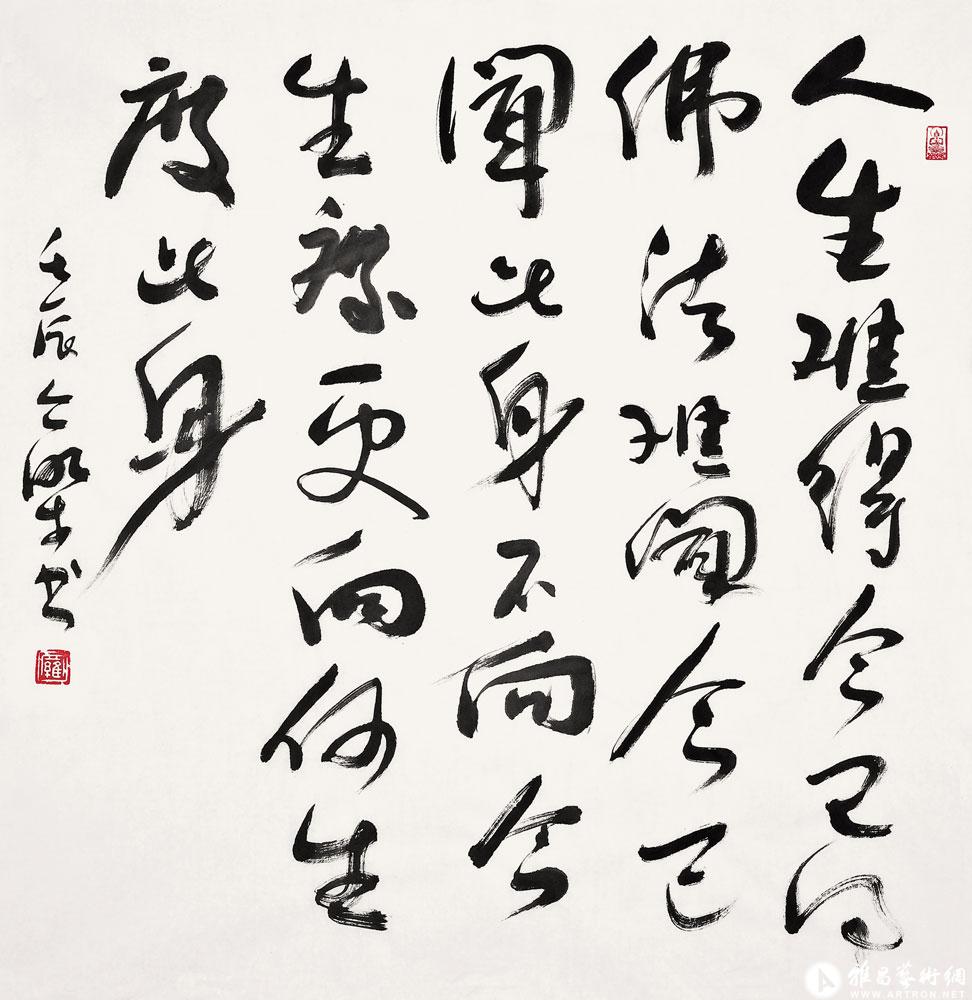 人生難得今已得
佛法難聞今已
聞此身不向今
生更向何生
度此身
壬辰书
雅昌藝術網
WWW.ARTRON.NET